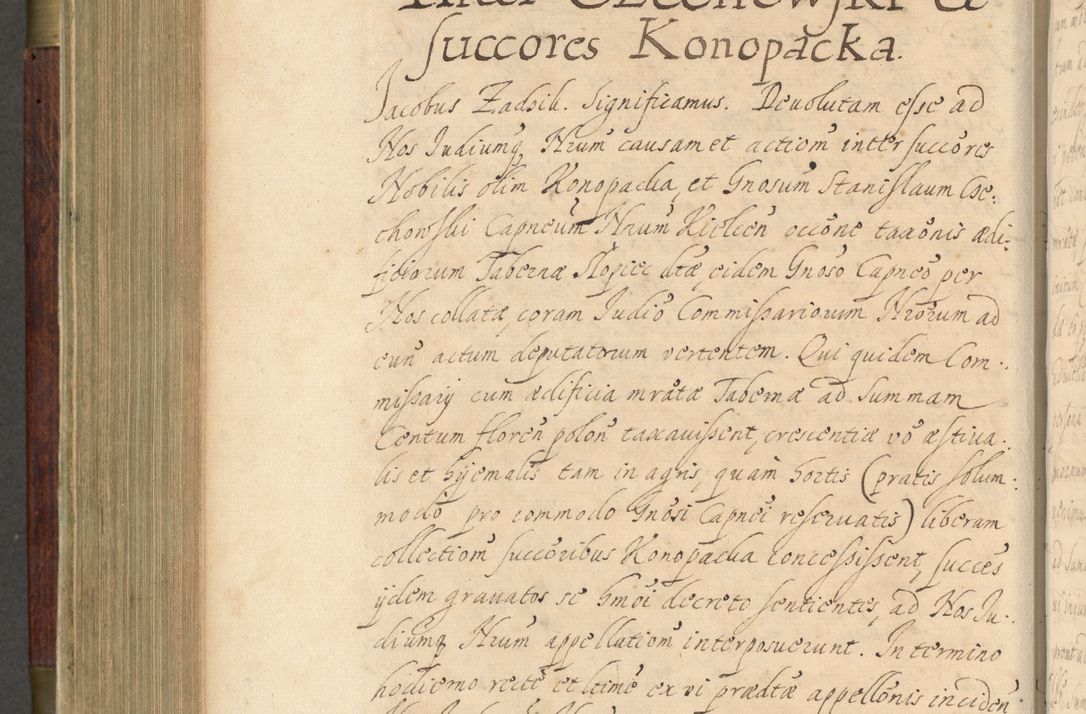 Inter Czechowski et
succores Konopacka.
Jacobus Zadzik. Significamus. Deuolutam esse ad
Nos Judiumq, Nrum causam et actiom̃ inter succores
Nobilis olim Konopacka, et Gnosum Stanislaum Cze:
chowski Capneum Nrum Kielcen̄ occōne taxōnis ædi-
ficiorum Tabernæ Słopiec dtæ, eidem Gnoso Capneo per
Nos collatæ, coram Judio Commissariorum Nrorum ad
eun̄ actum deputatorum vertentem. Qui quidem Com-.
missarij cum ædificia mratæ Tabernæ ad Summam
Centum floren̄ polon̄ taxauissent, crescentiæ vō æstiua.
lis et hyemalis tam in agris, quam hortis (pratis solum:
modo pro commodo Gnosi Capnei reseruatis) liberam
collectiom̃ succoribus Konopacka concessissent, succes
ijdem grauatos se hmōi decreto sentientes, ad Nos Ju-.
diumq Nrum appellatiom̃ interposuerunt. In termino
hodierno recte et ltime ex vi prædtæ appellōnis inciden̄